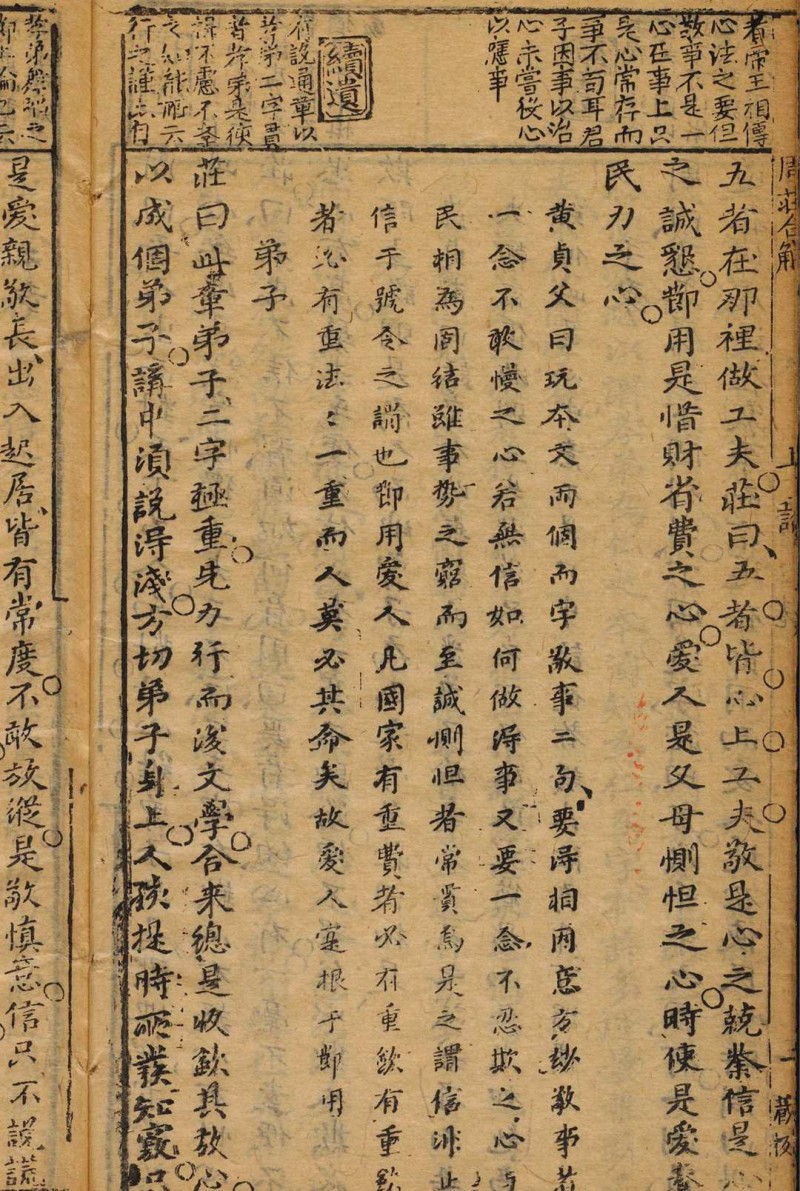 者帝王相傳
心法之要但
敬事不是一
心在事上只
是心常存而
事不苟耳君
子因事以治
心未嘗役心
以應事
續遺
有說通章以
孝弟二字貫
者孝弟是徯
之知能所六
行之謹六有
周莊合解
上論
一
藏板
五者在那裡做工夫莊曰五者皆心上工夫敬是心之兢業信是心
之誠懇節用是惜財省費之心愛人是父母惻怛之心時使是愛養
民力之心
黄貞父曰玩本文两個而字敬事二句要得相因意方妙敬事若
一念不敢慢之心若無信如何做得事又要一念不忍欺之心与
民相為固結雖事勢之窮而至誠惻怛者常貫焉是之謂信非止
信于號令之謂也節用愛人凡國家有重費者必有重歛有重歛
者必有重法〻一重而人莫必其命矣故愛人寔根于節用
弟子
莊曰此章弟子二字極重先力行而後文學合来總是收歛其放心
以成個弟子講中須說得淺方切弟子身上人孩提時所發知竅
是愛親敬長出入起居皆有常度不敢放縱是敬慎意信只不說謊